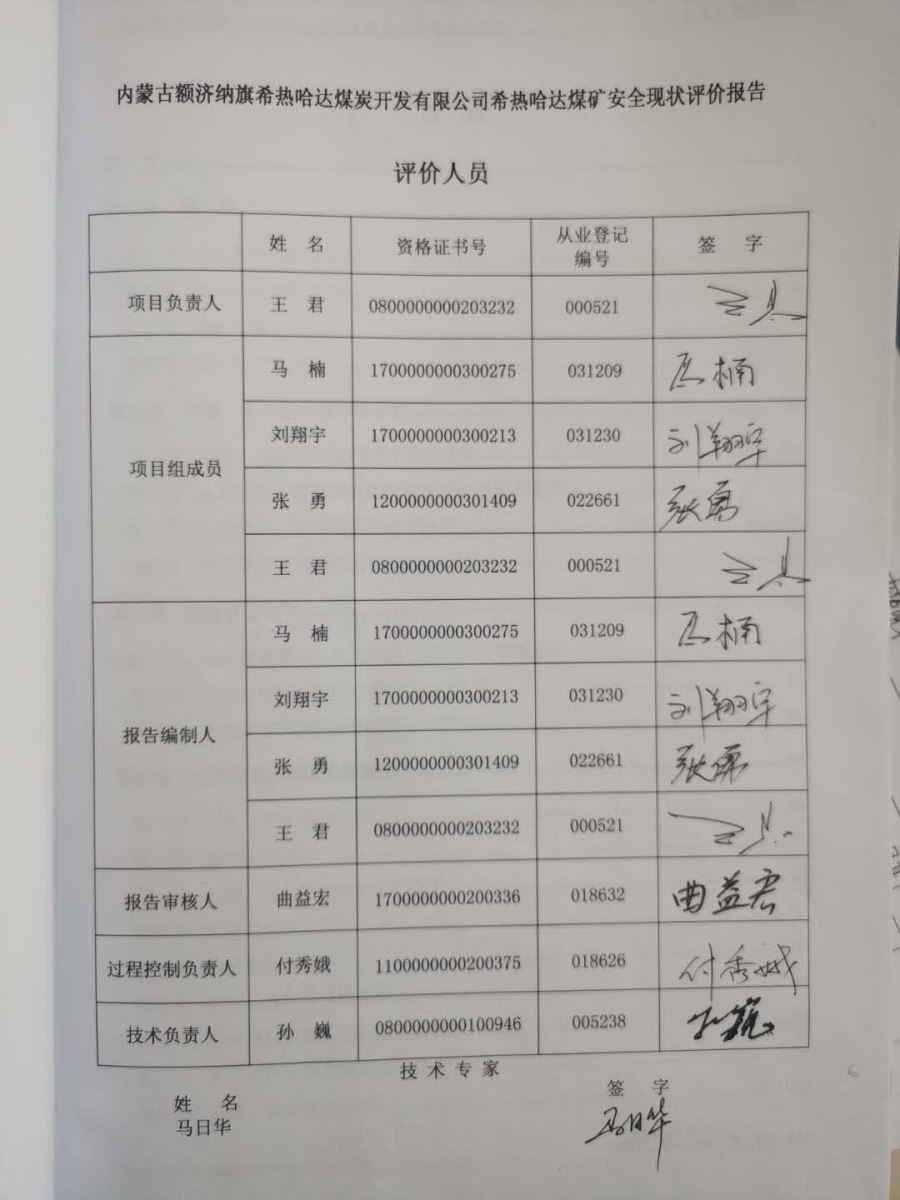 内蒙古额济纳旗希热哈达煤炭开发有限公司希热哈达煤矿安全现状评价报告
评价人员
姓 名 资格证书号 从业登记编号 签 字
项目负责人 王 君 0800000000203232 000521 王君
项目组成员
马 楠 1700000000300275 031209 马楠
刘翔宇 1700000000300213 031230 刘翔宇
张 勇 1200000000301409 022661 张勇
王 君 0800000000203232 000521 王君
报告编制人
马 楠 1700000000300275 031209 马楠
刘翔宇 1700000000300213 031230 刘翔宇
张 勇 1200000000301409 022661 张勇
王 君 0800000000203232 000521 王君
报告审核人 曲益宏 1700000000200336 018632 曲益宏
过程控制负责人 付秀娥 1100000000200375 018626 付秀娥
技术负责人 孙 巍 0800000000100946 005238 孙巍
技 术 专 家
姓 名 签 字
马日华 马日华
6